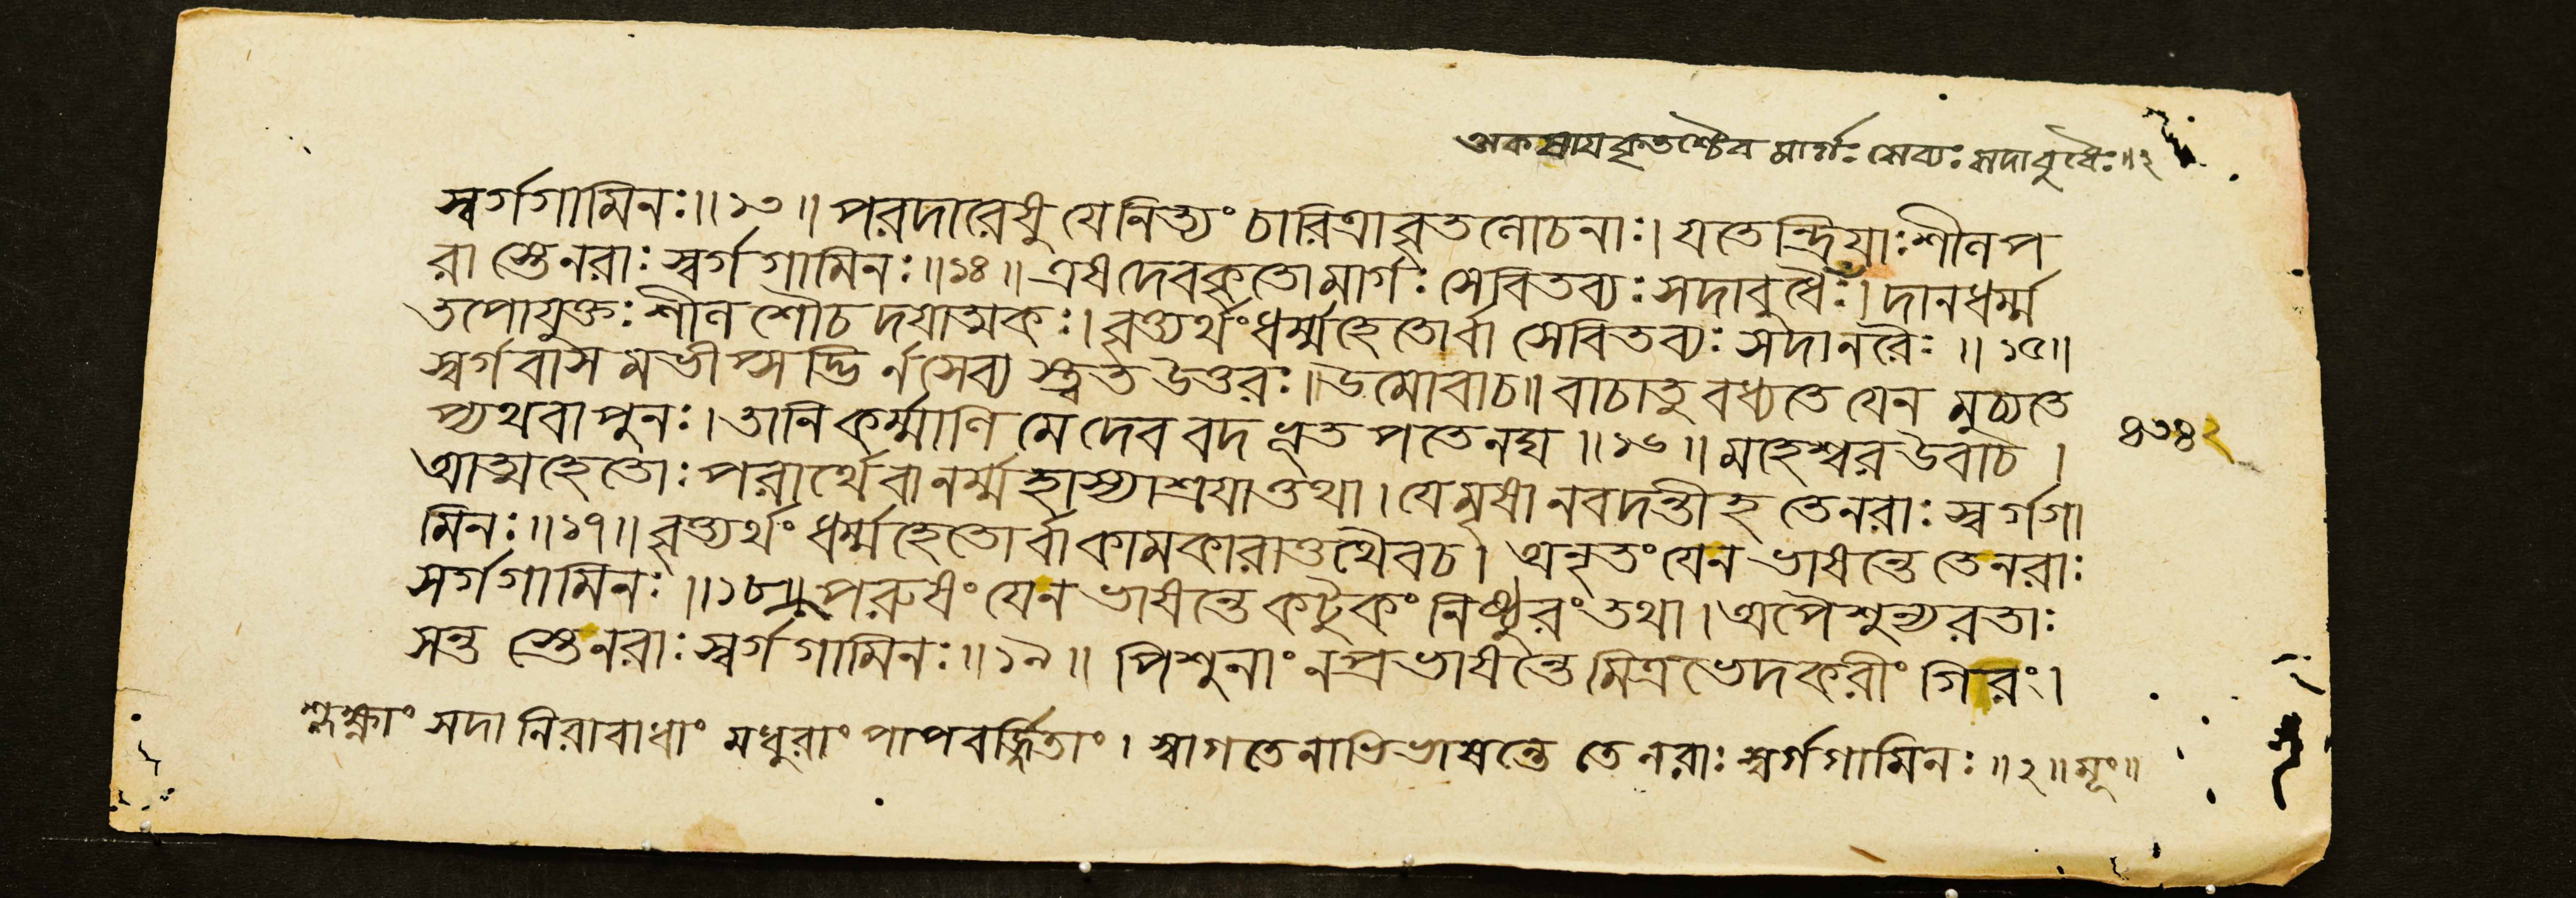 অকষাযকৃতশ্চৈব মার্গঃ সেব্যঃ সদাবুধৈঃ॥২
স্বর্গগামিনঃ॥১৩॥পরদারেষু যেনিত্যং চারিত্রাবৃতলোচনাঃ। যতেন্দ্রিযাঃশীলপ
রাস্তেনরাঃ স্বর্গগামিনঃ॥১৪॥এষদেবকৃতোমার্গঃ সেবিতব্যঃ সদাবুধৈঃ।দানধর্ম্ম
তপোযুক্তঃ শীলশৌচদযাত্মকঃ। বৃত্ত্যর্থংধর্ম্মহেতোর্বা সেবিতব্যঃ সদানরৈঃ॥১৫॥
স্বর্গবাসমভীপ্সদ্ভির্নসেব্যস্ত্বতউত্তরঃ॥উমোবাচ॥বাচাতুবধ্যতেযেন মুচ্যতে
প্যথবাপুনঃ। তানিকর্ম্মাণি মেদেববদভূতপতেনঘ॥১৬॥মহেশ্বরউবাচ।
আত্মহেতোঃ পরার্থেবানর্ম্মহাস্যাশ্রযাত্তথা। যেমৃষানবদন্তীহ তেনরাঃ স্বর্গগা
মিনঃ॥১৭॥বৃত্ত্যর্থং ধর্ম্মহেতোর্বাকামকারাত্তথৈবচ। অনৃতংযেন ভাষন্তেতেনরাঃ
সর্গগামিনঃ॥১৮॥পরুষংযেনভাষন্তেকটুকংনিষ্ঠুরংতথা।অপৈশুন্যরতাঃ
সন্তস্তেনরাঃ স্বর্গগামিনঃ॥১৯॥ পিশুনাংনপ্রভাষন্তেমিত্রভেদকরীং গিরং।
শ্লক্ষ্ণাং সদানিরাবাধাং মধুরাং পাপবর্জ্জিতাং। স্বাগতেনাভিভাষন্তে তেনরাঃ স্বর্গগামিনঃ॥২॥মূং॥
৪৩৪২